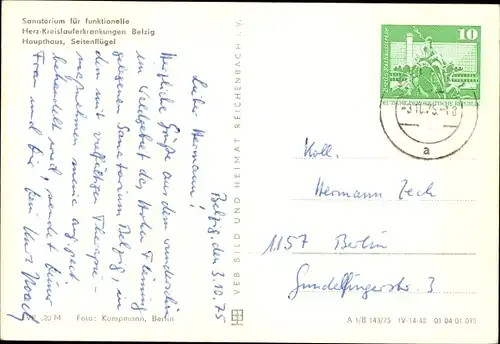 Sanatorium für funktionelle
Herz-Kreislauferkrankungen Belzig
Haupthaus, Seitenflügel
Belzig, den 3.10.75
Lieber Hermann!
Herzliche Grüße aus dem wunderschön
im Waldgebiet des Hohen Fläming
gelegenen Sanatorium Belzig, in
dem mit vielfältigen Therapie-
maßnahmen meine
behandelt wird, sendet Deiner
Frau und Dir Dein Kurt
VEB BILD UND HEIMAT REICHENBACH i. V.
10
DEUTSCHE DEMOKRATISCHE REPUBLIK
-3.10.75.-18
a
Koll.
Hermann Zech
1157 Berlin
Gundelfingerstr. 3
Foto: Kampmann, Berlin
A 1/B 143/75 IV-14-48 01 04 01 015